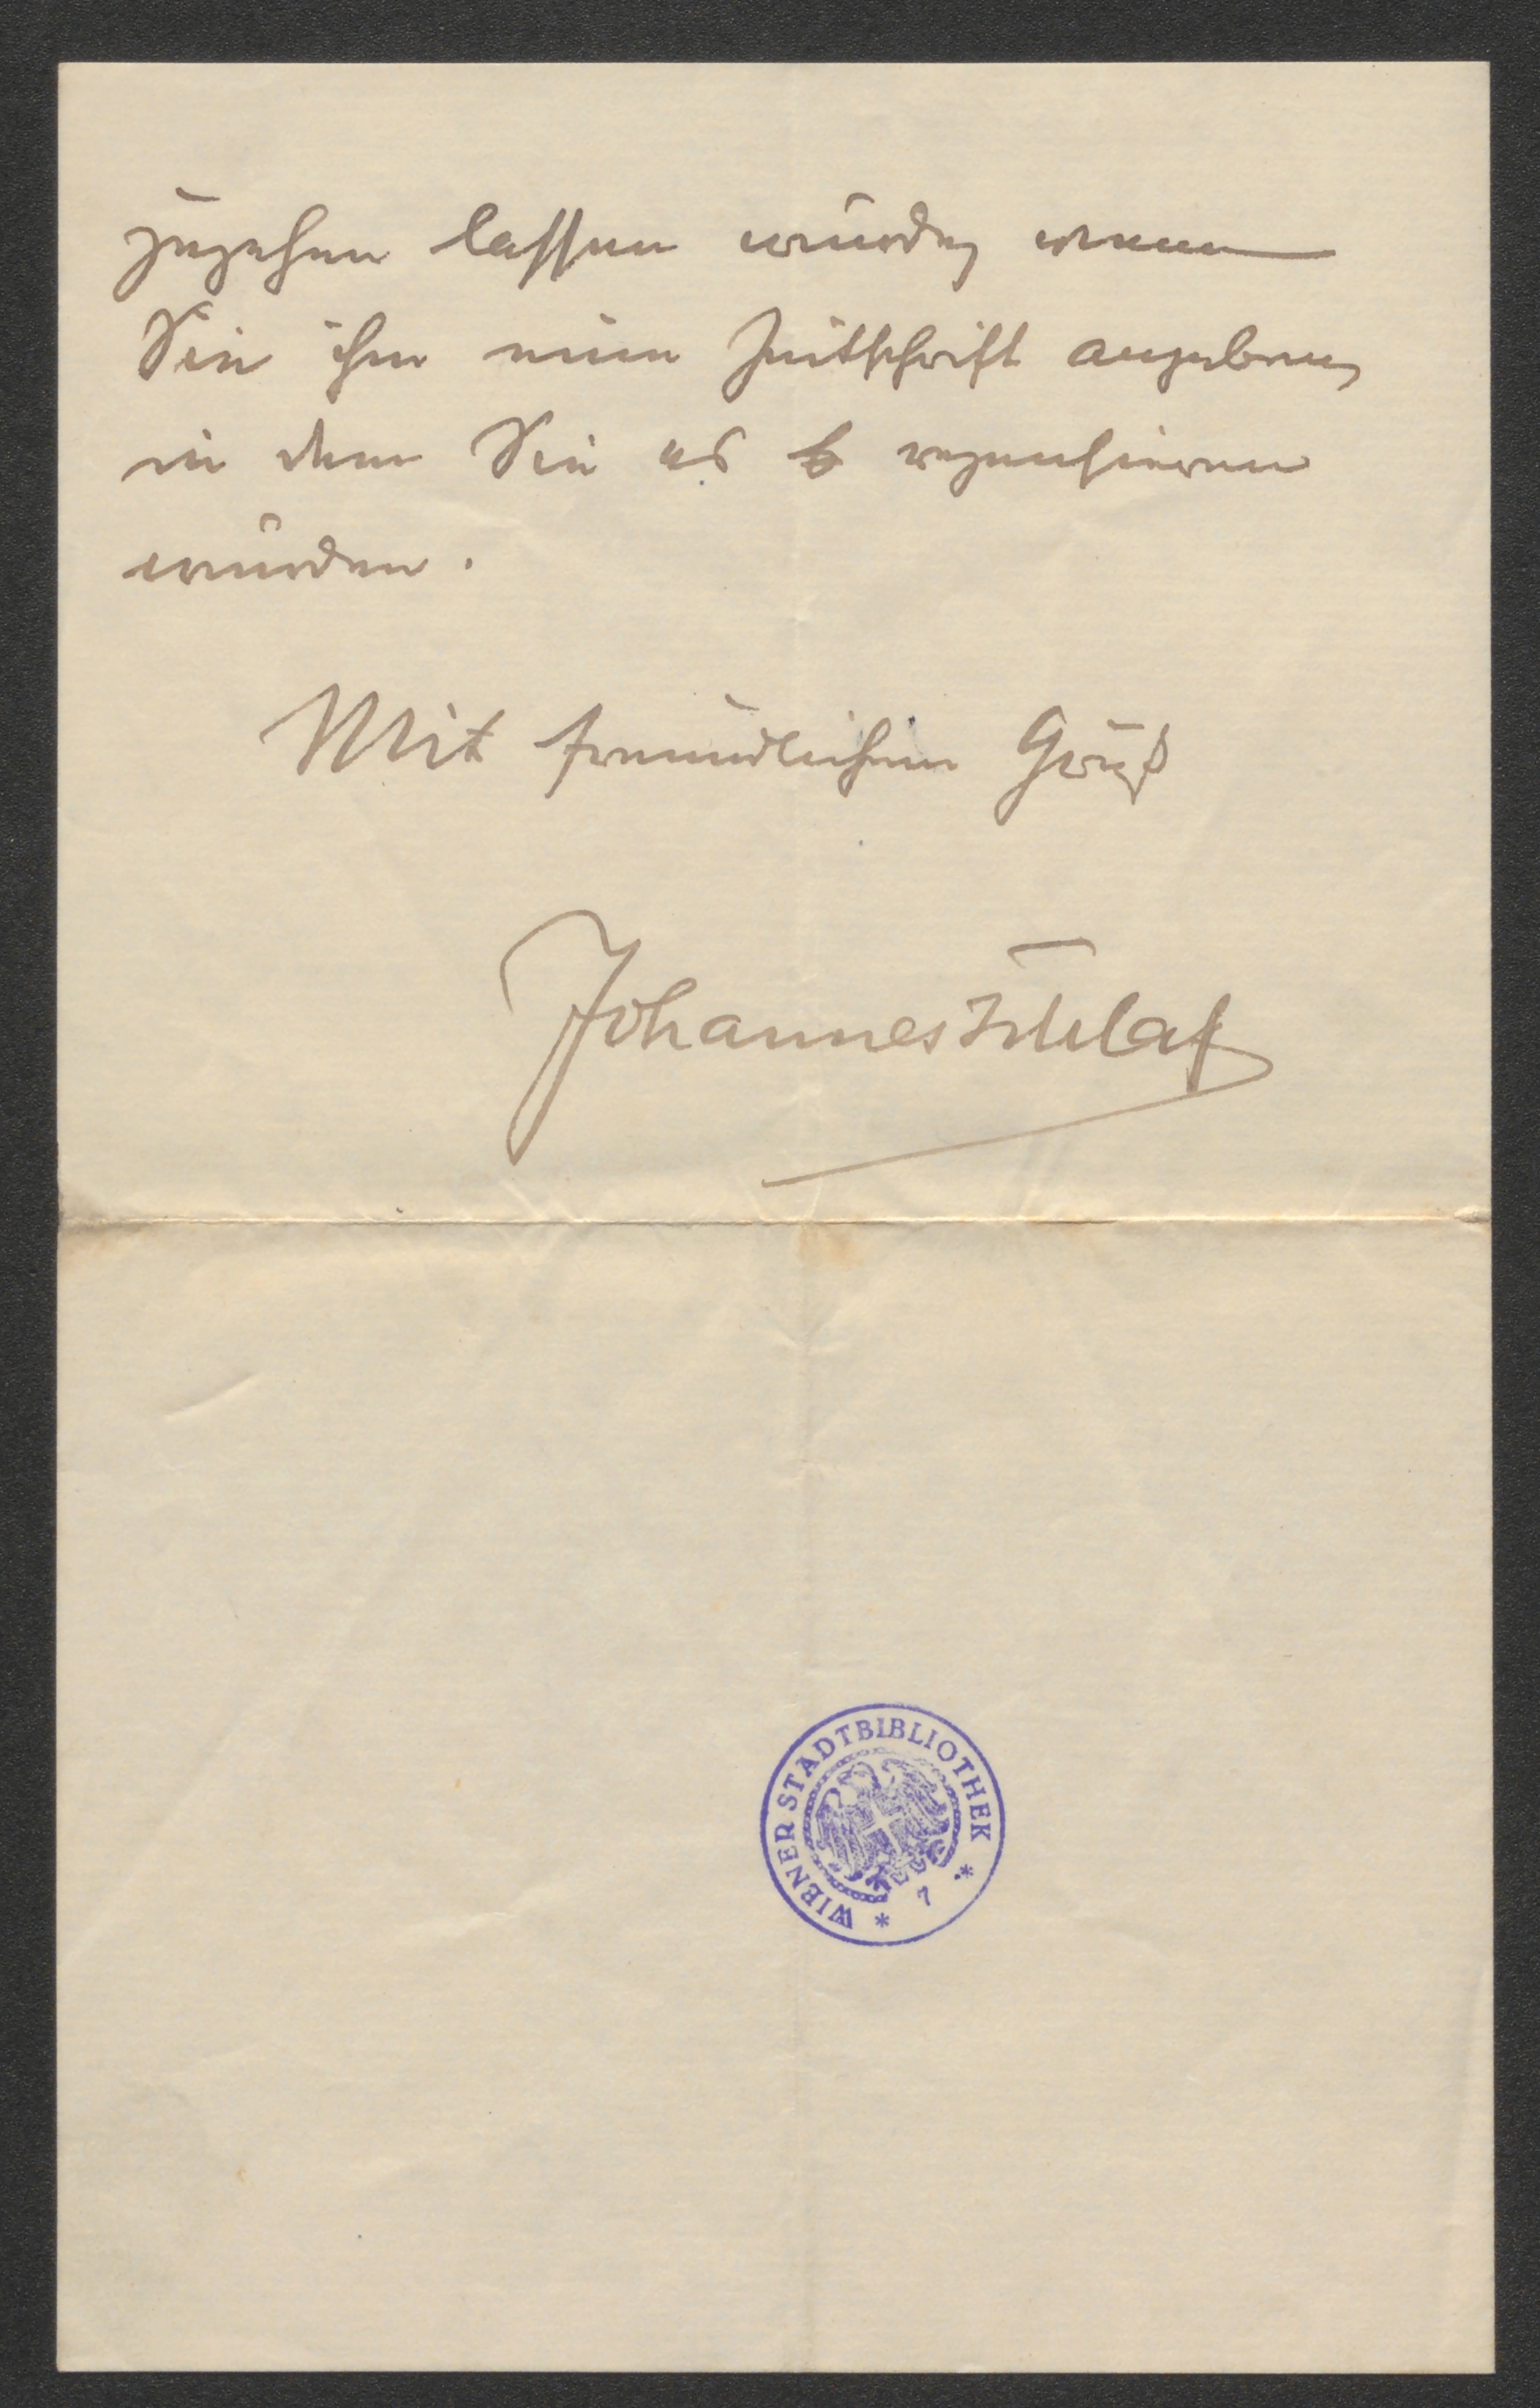 zugehen lassen würde, wenn
Sie ihm eine Zeitschrift angeben,
in dem Sie es b rezensieren
würden.
Mit freundlichem Gruß
Johannes Schlaf
WIENER STADTBIBLIOTHEK * 7 *